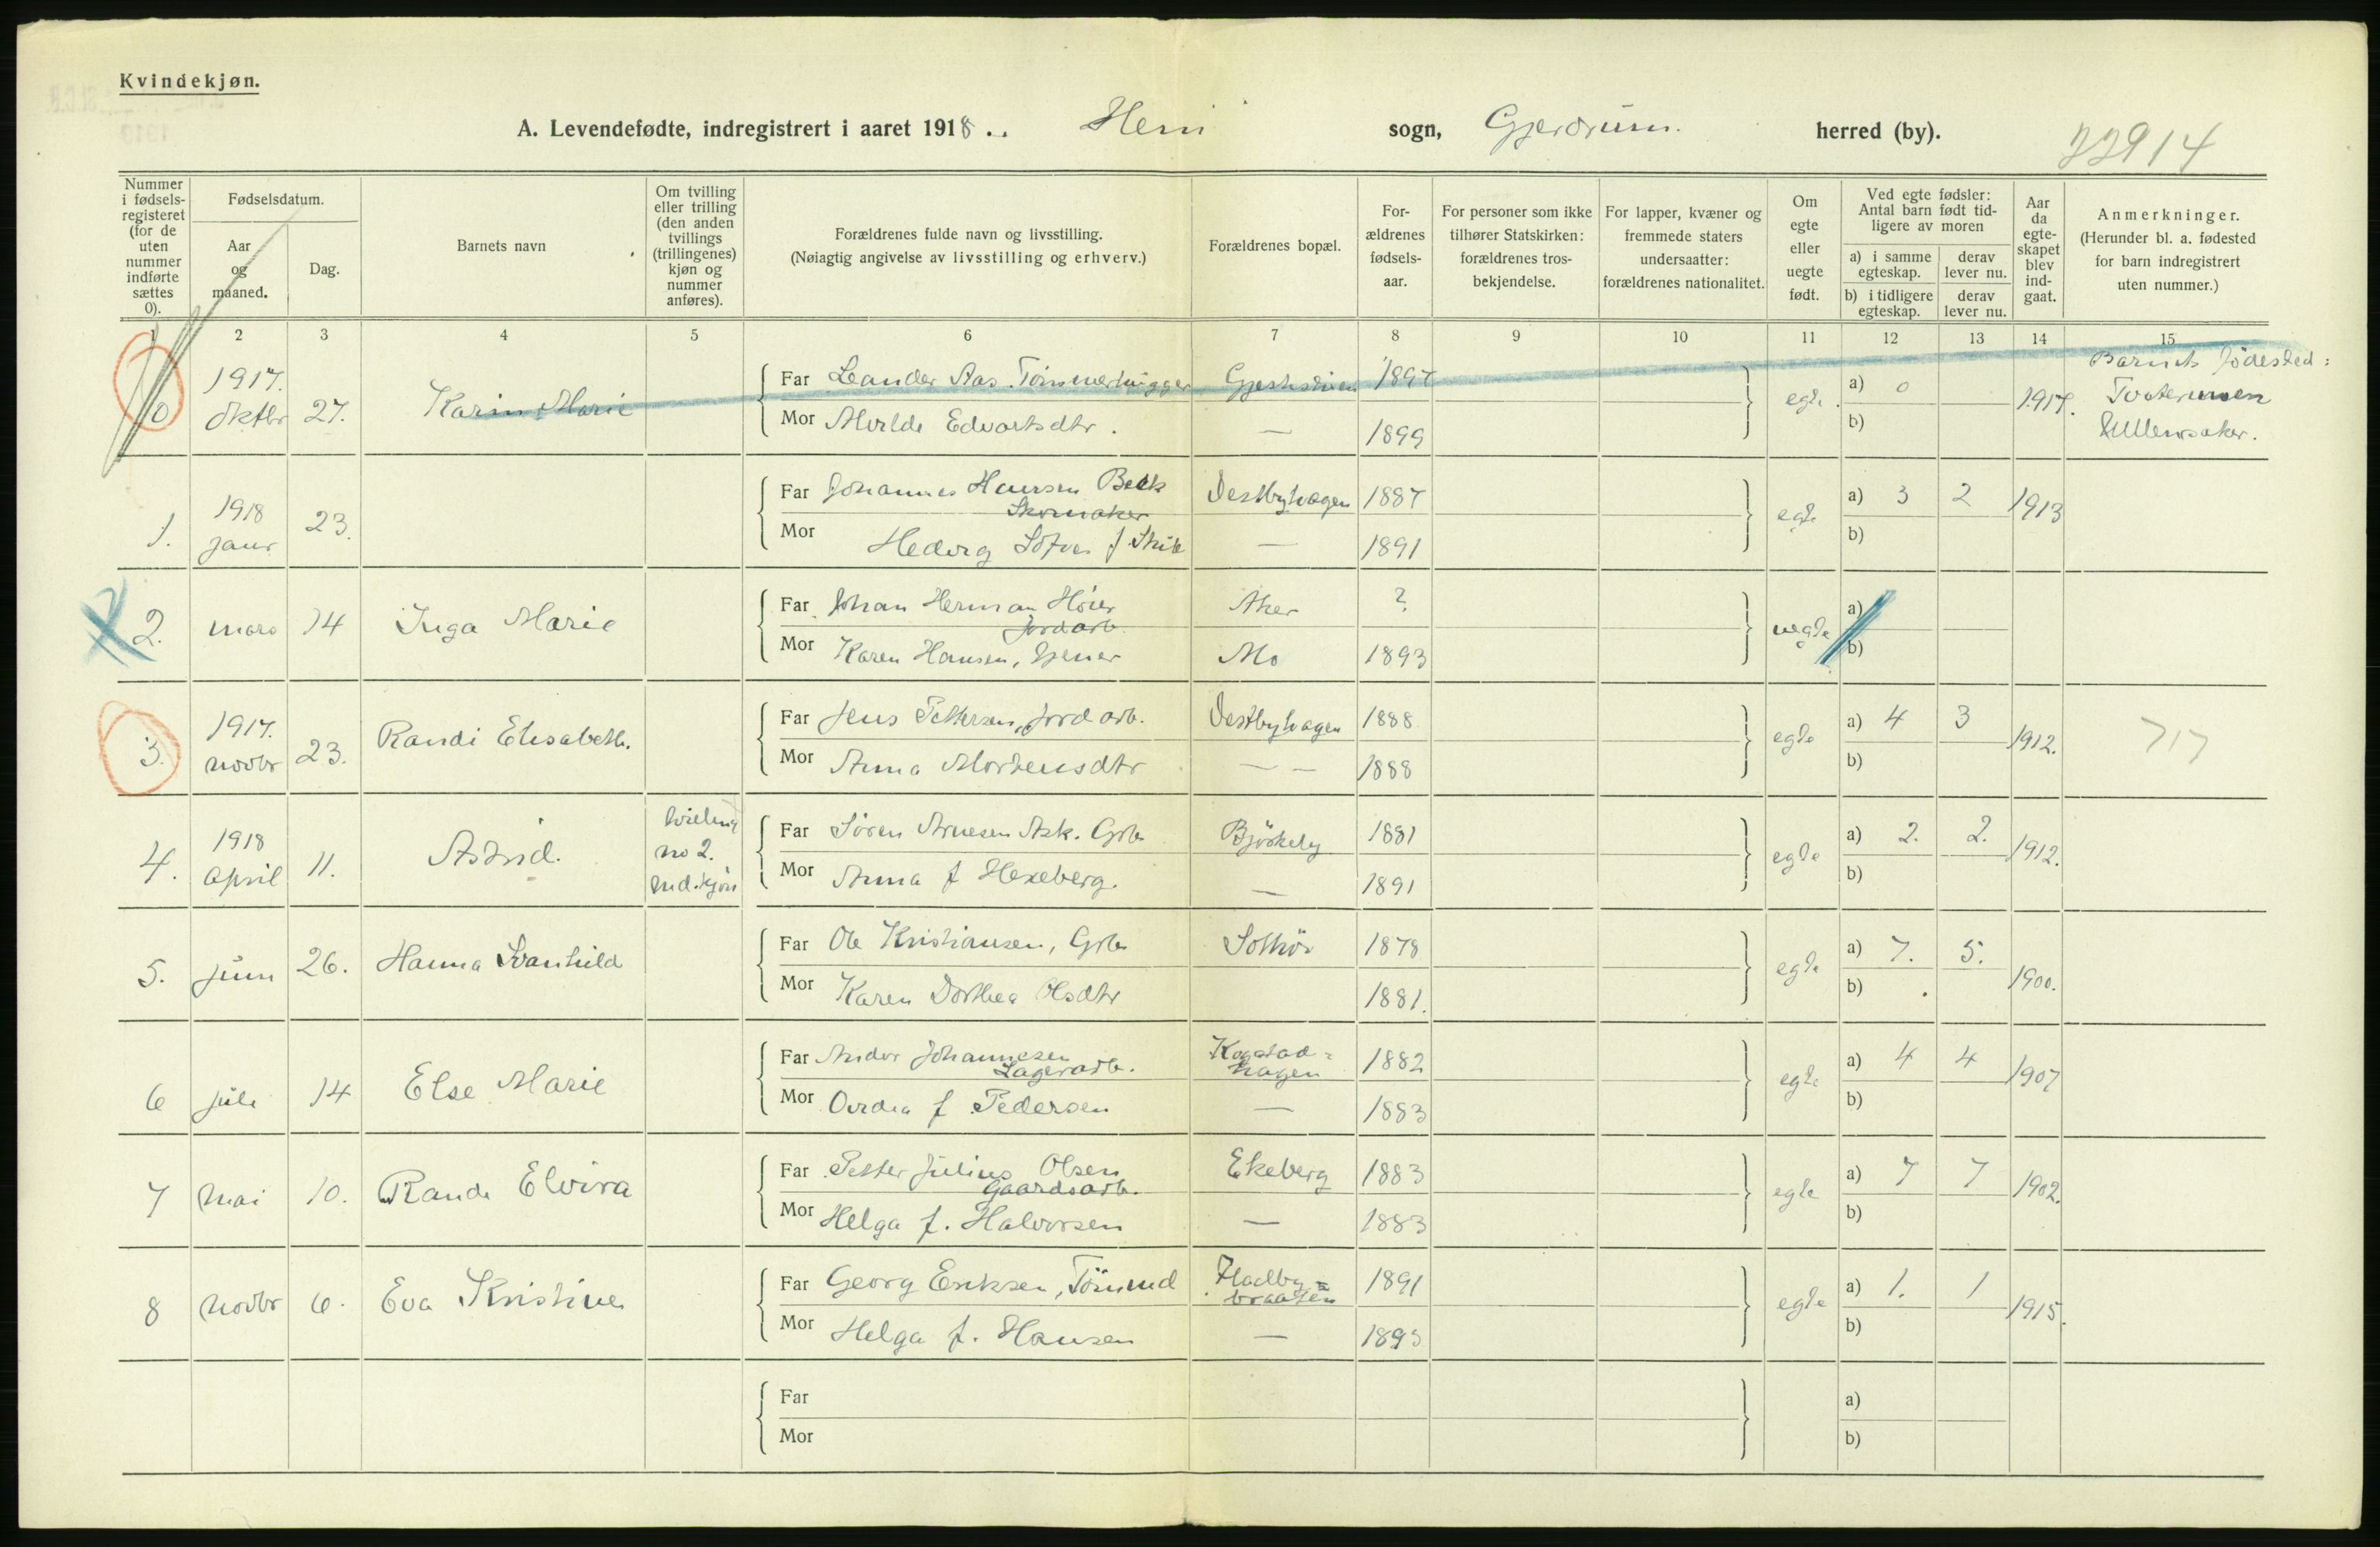 Kvindekjøn.
A. Levendefødte, indregistrert i aaret 1918. Heni sogn, Gjerdrum herred (by).
22914
Nummer i fødsels-registeret (for de uten nummer indførte sættes 0).
Fødselsdatum.
Aar og maaned.
Dag.
Barnets navn
Om tvilling eller trilling (den anden tvillings (trillingenes) kjøn og nummer anføres).
Forældrenes fulde navn og livsstilling.
(Nøiagtig angivelse av livsstilling og erhverv.)
Forældrenes bopæl.
For-ældrenes fødsels-aar.
For personer som ikke tilhører Statskirken: forældrenes tros-bekjendelse.
For lapper, kvæner og fremmede staters undersaatter: forældrenes nationalitet.
Om egte eller uegte født.
Ved egte fødsler: Antal barn født tid-ligere av moren
a) i samme egteskap.
derav lever nu.
b) i tidligere egteskap.
derav lever nu.
Aar da egte-skapet blev ind-gaat.
Anmerkninger.
(Herunder bl. a. fødested for barn indregistrert uten nummer.)
1 2 3 4 5 6 7 8 9 10 11 12 13 14 15
0 1917. Oktbr 27. Karin Marie
Far Leander Aas. Tømmerhugger 1897
Mor Edvartsdtr. — 1899
egte. a) 0 b) 1917.
Barnets födested:
Ullensaker.
1. 1918 Janr 23.
Far Johannes Hansen Bekk Skomaker Vestbyhagen 1887
Mor — 1891
egte a) 3 2 b) 1913
2. mars 14 Inga Marie
Far Johan Herman Höier Jordarb. Aker ?
Mor Karen Hansen, Mo 1893
uegte a) b)
3. 1917. Novbr 23. Randi Elisabeth.
Far Jens Pettersen, Jordarb. Vestbyhagen 1888
Mor Anna Mortensdtr — — 1888
egte a) 4 3 b) 1912.
717
4. 1918 April 11. Astrid.
tvilling no 2. md.kjön
Far Sören Arnesen Ask. Grbr Björkeby 1881
Mor Anna f Hexeberg. — 1891
egte a) 2. 2. b) 1912.
5. Juni 26. Hanna Svanhild
Far Ole Kristiansen, Grbr 1878
Mor Karen Dorthea Olsdtr 1881.
egte a) 7. 5. b) 1900.
6 Juli 14 Else Marie
Far Andor Johannesen Lagerarb. Kogstad=hagen 1882
Mor f Pedersen — 1883
egte a) 4 4 b) 1907
7 Mai 10. Randi Elvira
Far Petter Julius Olsen Gaardsarb. Ekeberg 1883
Mor Helga f. Halvorsen — 1883
egte a) 7 7 b) 1902.
8 Novbr 6. Eva Kristine
Far Georg Eriksen, braaten 1891
Mor Helga f. Hansen — 1893
egte a) 1. 1 b) 1915.
Far
Mor
a)
b)